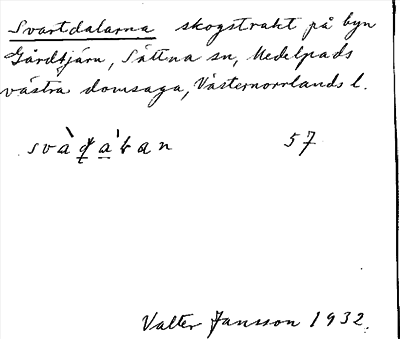 Svartdalarna skogstrakt på byn
Gårdtjärn, Sättna sn, Medelpads
västra domsaga, Västernorrlands l.
57
Valter Jansson 1932.